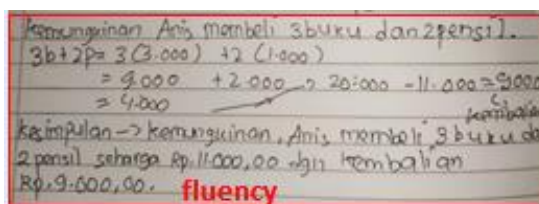 kemungkinan Anis membeli 3 buku dan 2 pensil.
3b+2p = 3 (3.000) + 2 (1.000)
= 9.000 + 2.000 → 20.000 - 11.000 = 9000
= 4.000 kembalian
kesimpulan → kemungkinan, Anis membeli 3 buku da
2 pensil seharga Rp.11.000,00 dgn kembalian
Rp.9.000,00. fluency